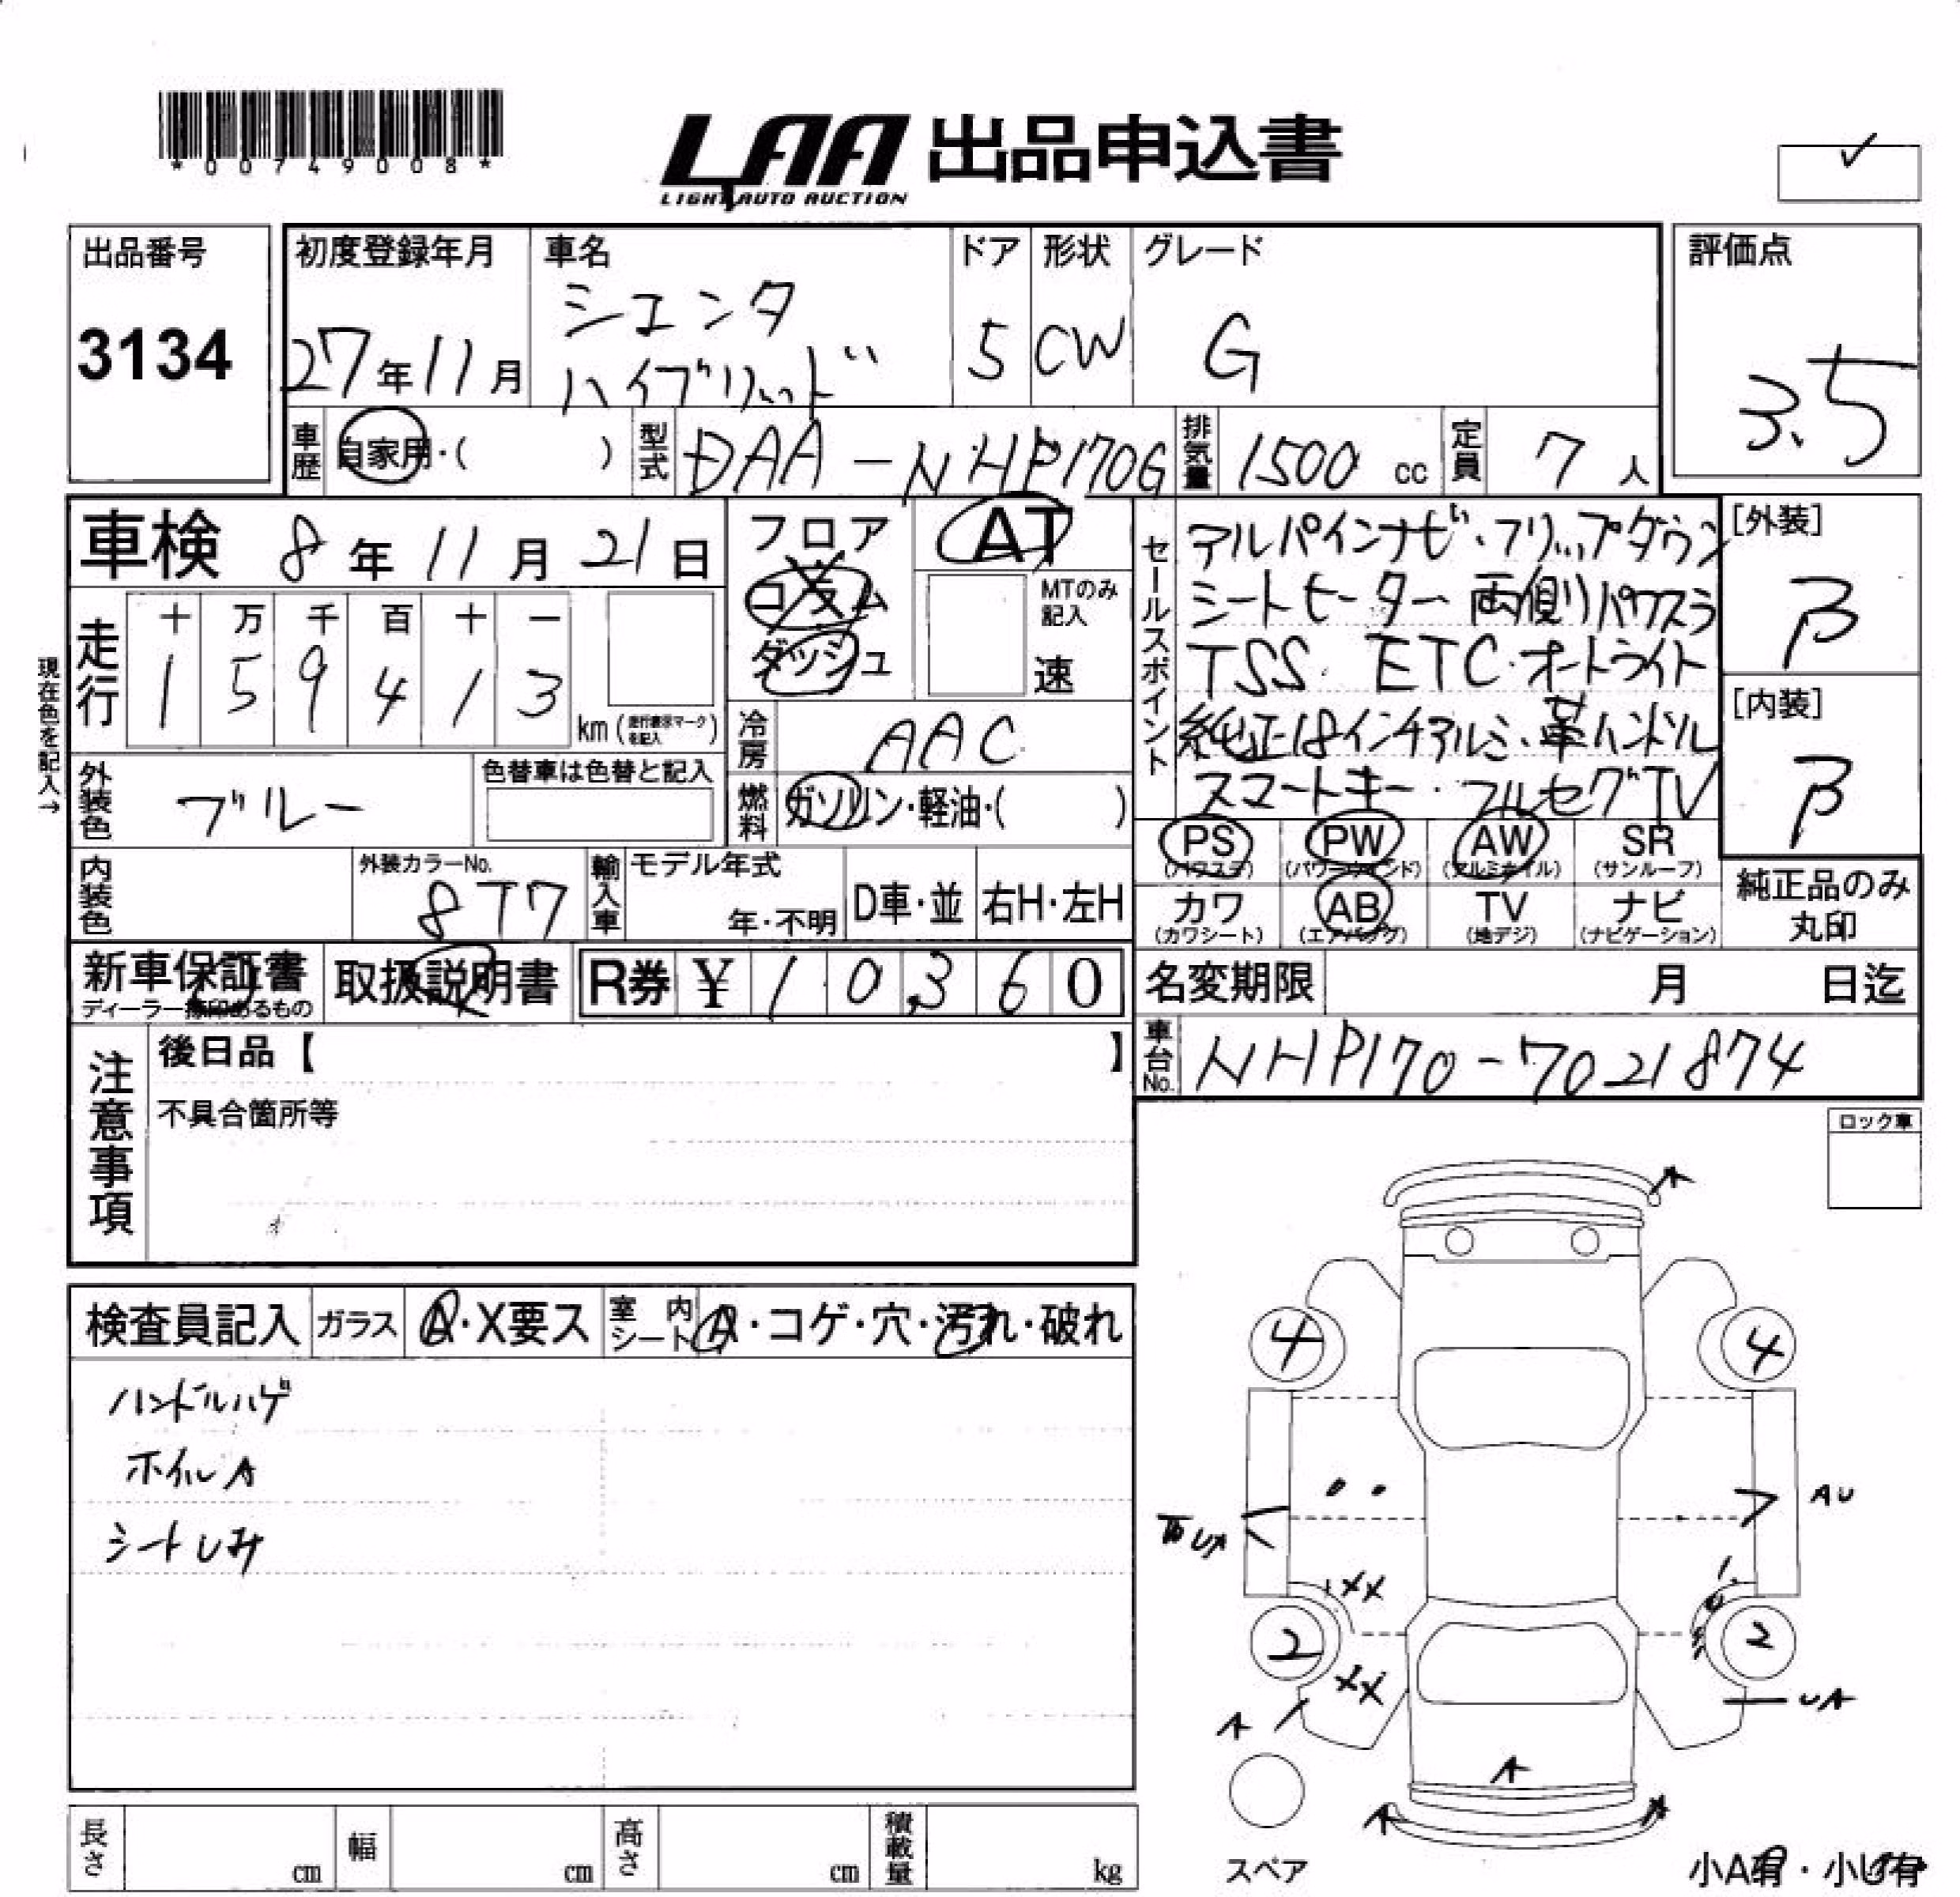 *00749008*
LAA 出品申込書
LIGHT AUTO AUCTION
✓
出品番号
3134
初度登録年月
27年11月
車名
シエンタ
ハイブリッド
ドア
5
形状
CW
グレード
G
評価点
3.5
車歴
自家用・( )
型式
DAA-NHP170G
排気量
1500 cc
定員
7 人
車検 8年11月21日
フロア
コラム
ダッシュ
AT
MTのみ記入
速
走行
十 万 千 百 十 一
1 5 9 4 1 3
km (走行表示マークを記入)
現在色を記入→
冷房
AAC
外装色
ブルー
色替車は色替と記入
燃料
ガソリン・軽油・( )
内装色
外装カラーNo.
8T7
輸入車
モデル年式
年・不明
D車・並
右H・左H
セールスポイント
アルパインナビ・フリップダウン
シートヒーター 両側パワスラ
TSS ETC・オートライト
純正18インチアルミ、革ハンドル
スマートキー・フルセグTV
[外装]
B
[内装]
B
PS (パワステ)
PW (パワーウインド)
AW (アルミホイル)
SR (サンルーフ)
カワ (カワシート)
AB (エアバッグ)
TV (地デジ)
ナビ (ナビゲーション)
純正品のみ
丸印
新車保証書
ディーラー捺印あるもの
取扱説明書
R券 ¥ 10,360
名変期限 月 日迄
車台No.
NHP170-7021874
注意事項
後日品【 】
不具合箇所等
ロック車
検査員記入
ガラス
A・X要ス
室内シート
A・コゲ・穴・汚れ・破れ
ハンドルハゲ
ホイルA
シートしみ
A
4
4
AU
XX
2
2
XX
A
UA
A
A
スペア
小A有・小U有
長さ cm
幅 cm
高さ cm
積載量 kg